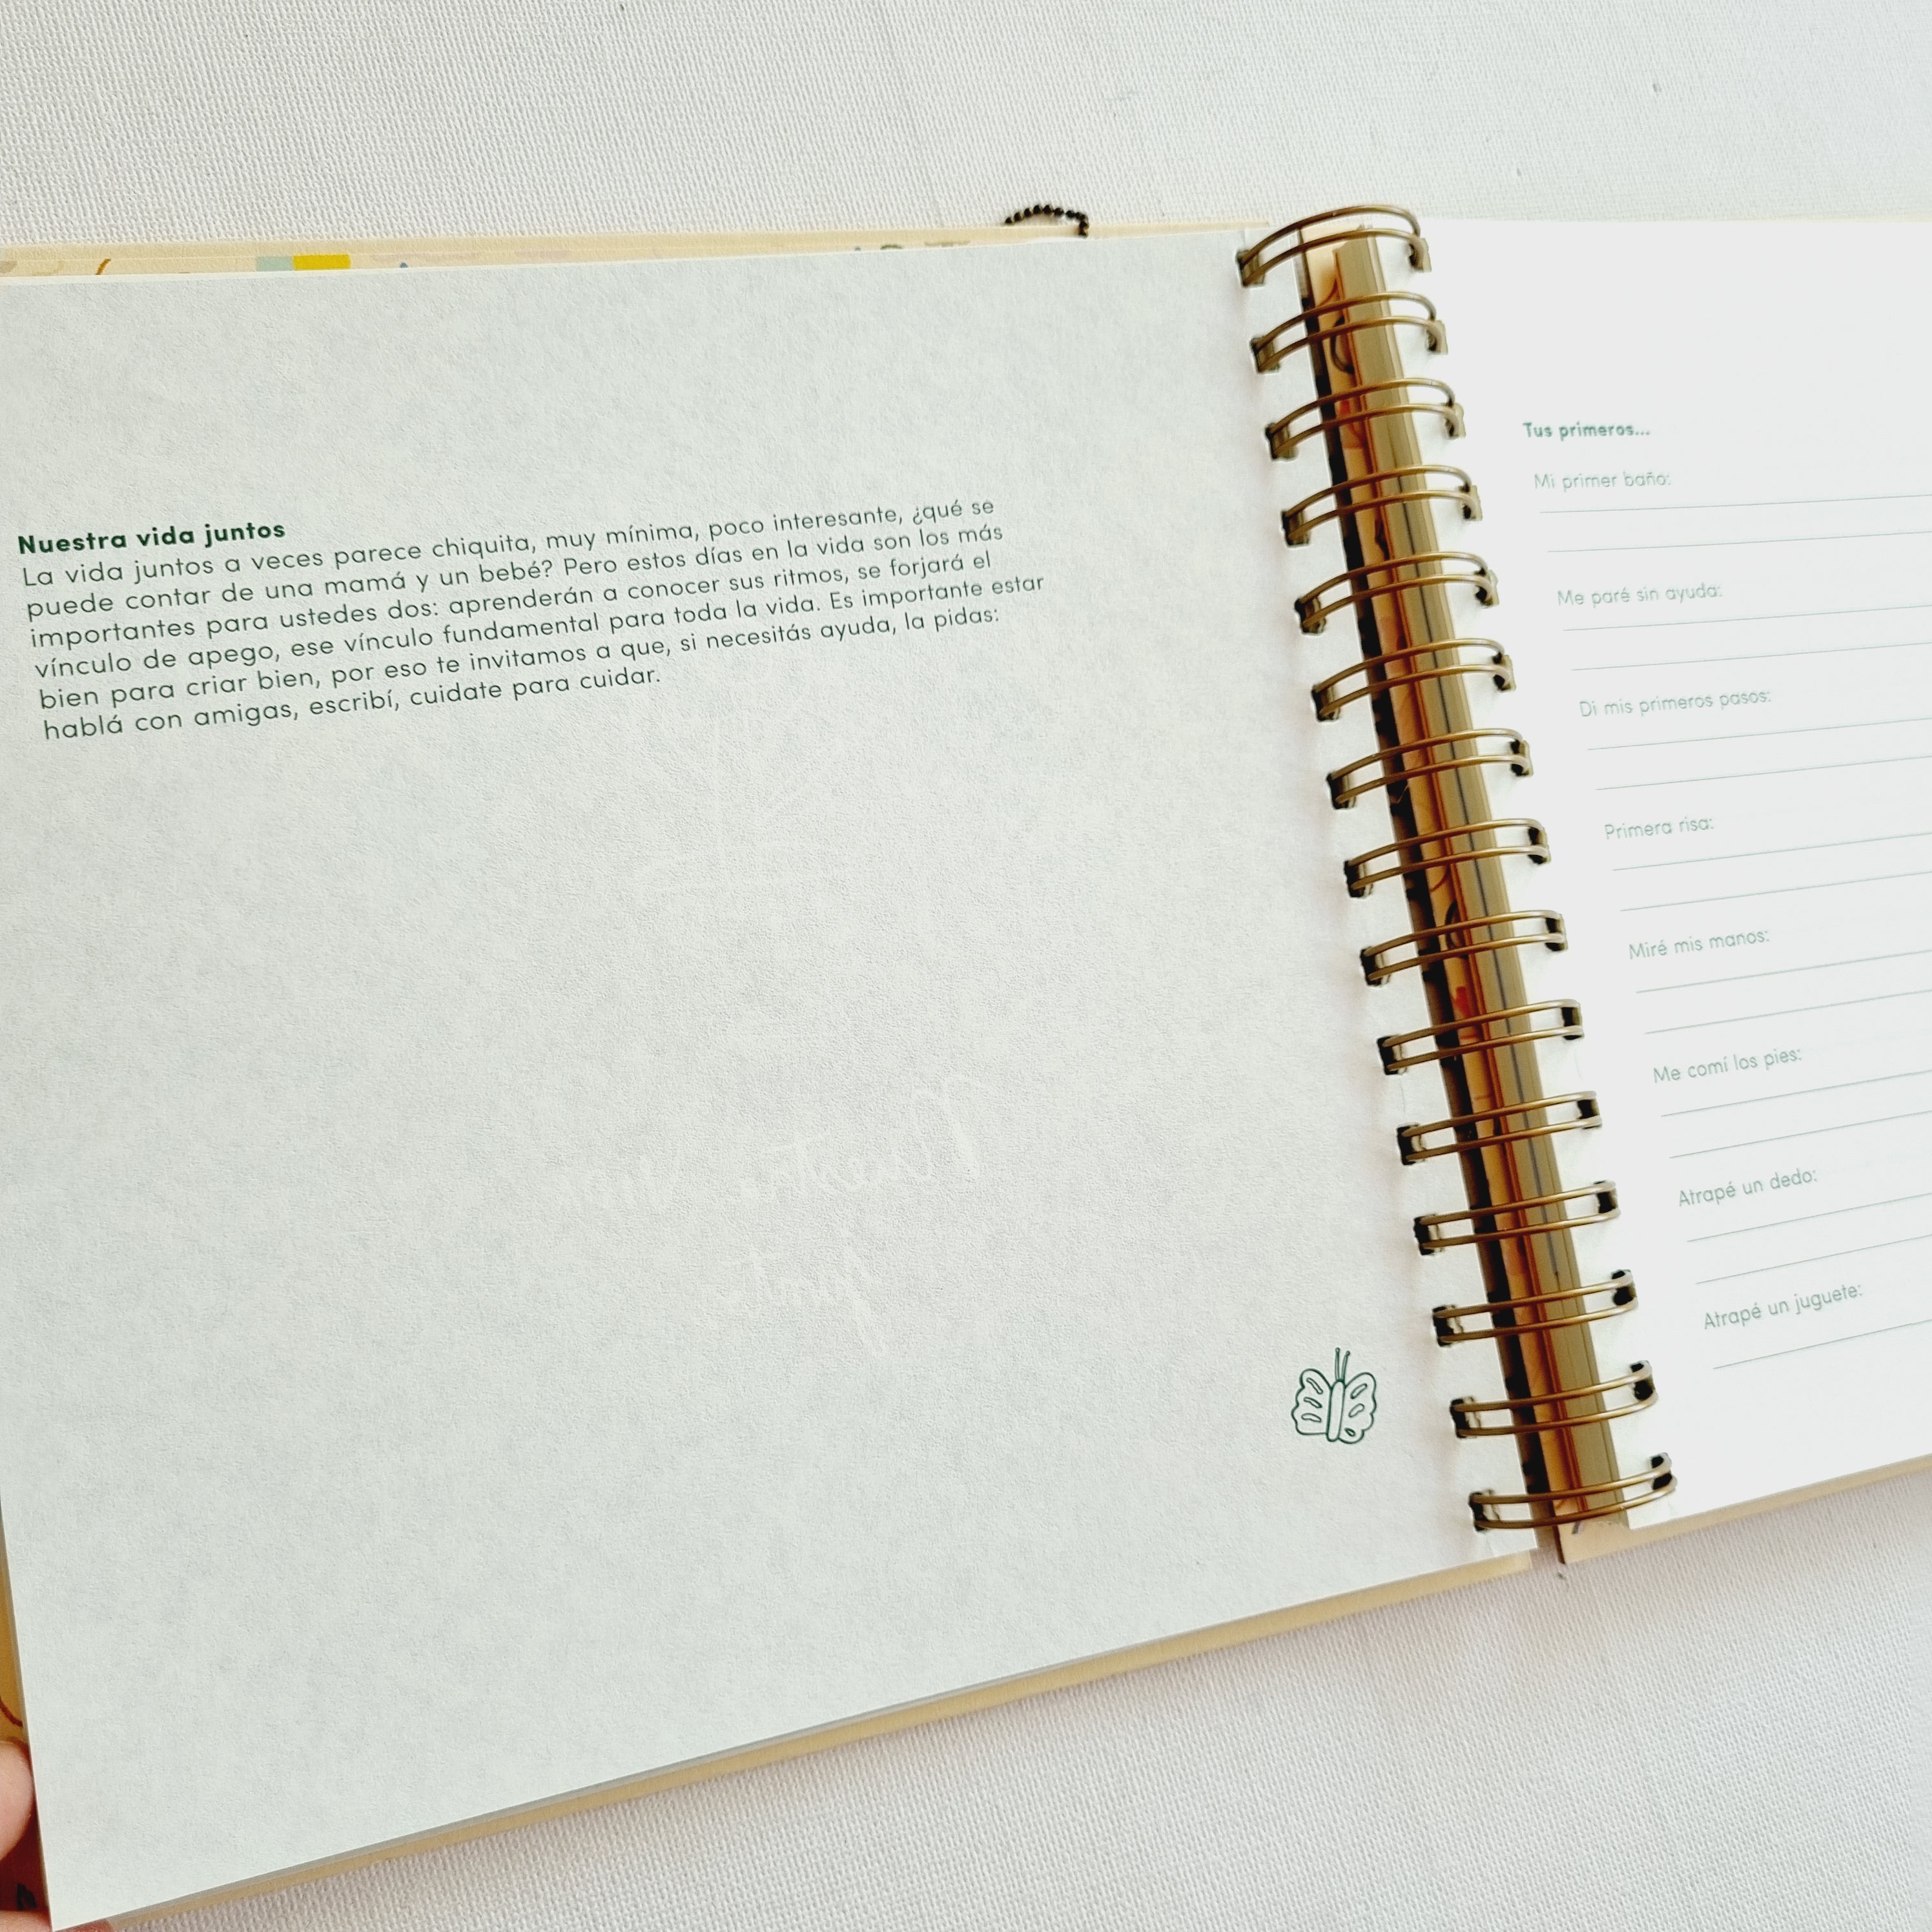 Nuestra vida juntos
La vida juntos a veces parece chiquita, muy mínima, poco interesante, ¿qué se
puede contar de una mamá y un bebé? Pero estos días en la vida son los más
importantes para ustedes dos: aprenderán a conocer sus ritmos, se forjará el
vínculo de apego, ese vínculo fundamental para toda la vida. Es importante estar
bien para criar bien, por eso te invitamos a que, si necesitás ayuda, la pidas:
hablá con amigas, escribí, cuidate para cuidar.
Tus primeros...
Mi primer baño:
Me paré sin ayuda:
Di mis primeros pasos:
Primera risa:
Miré mis manos:
Me comí los pies:
Atrapé un dedo:
Atrapé un juguete: